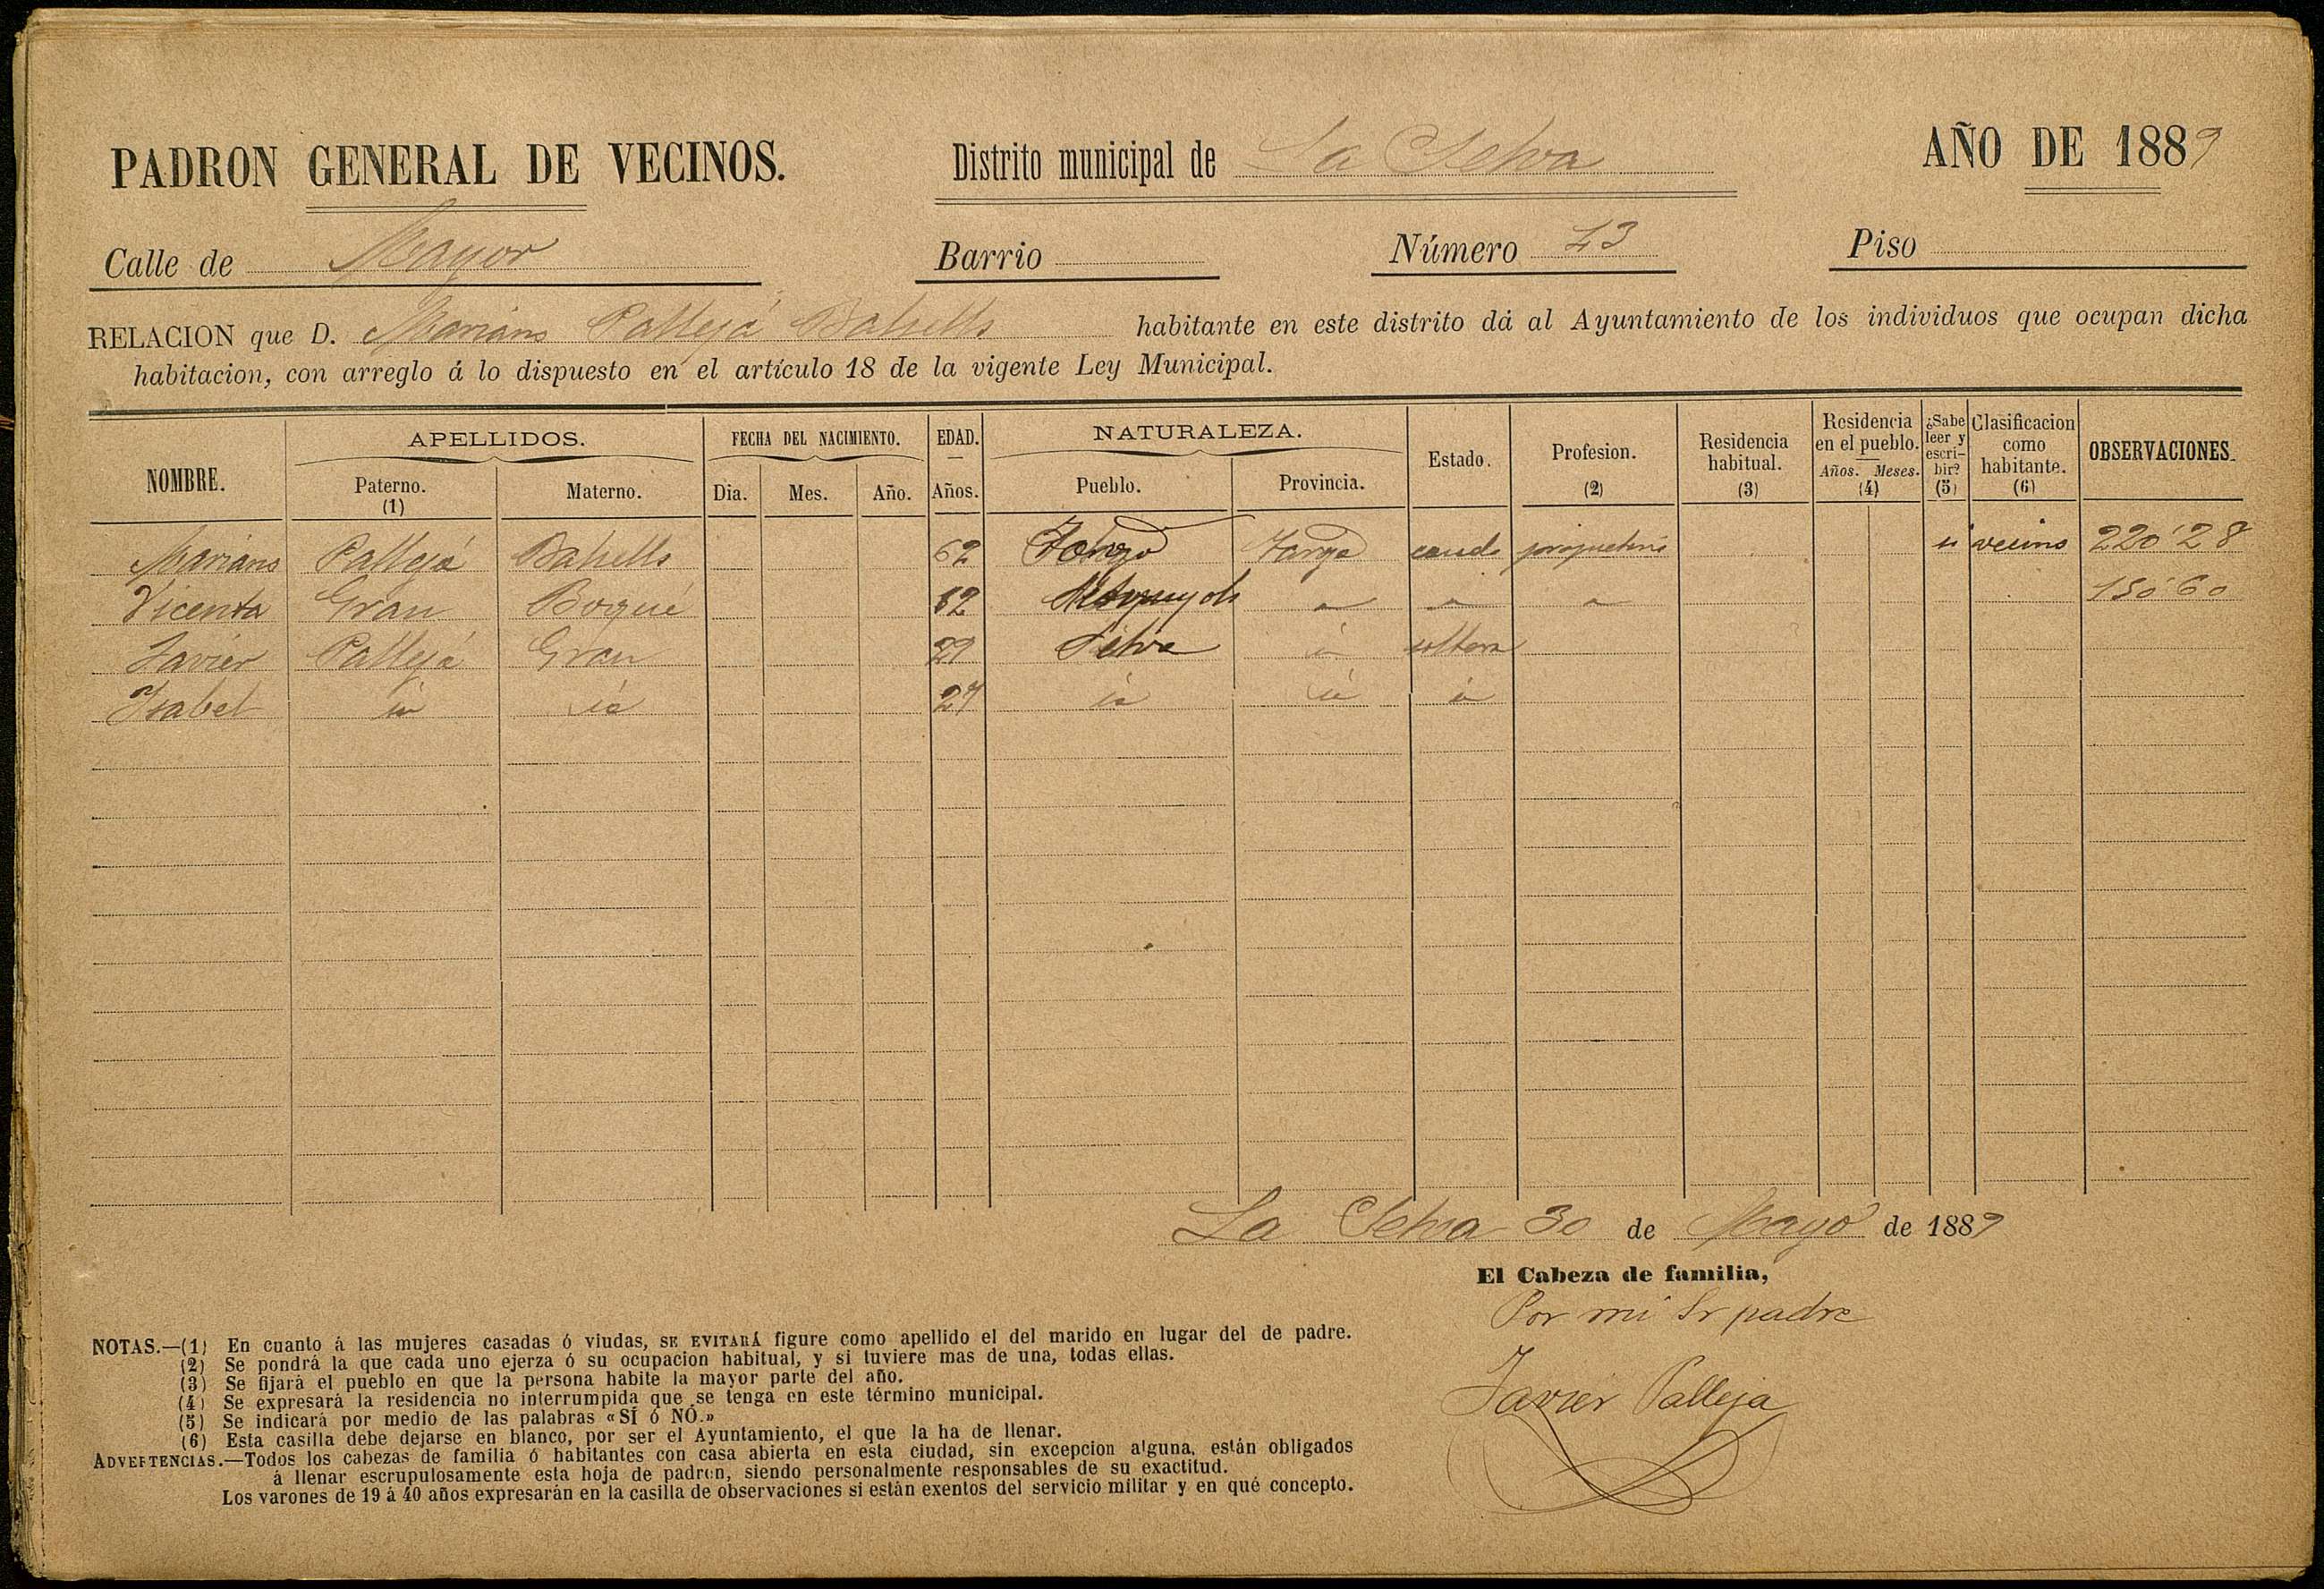 PADRON GENERAL DE VECINOS. Distrito municipal de La Selva AÑO DE 1889
Calle de Mayor Barrio Número 23 Piso
RELACION que D. Mariano Pallejá Batuells habitante en este distrito dá al Ayuntamiento de los individuos que ocupan dicha
habitacion, con arreglo á lo dispuesto en el artículo 18 de la vigente Ley Municipal.
NOMBRE. APELLIDOS. Paterno. (1) Materno. FECHA DEL NACIMIENTO. Dia. Mes. Año. EDAD. Años. NATURALEZA. Pueblo. Provincia. Estado. Profesion. (2) Residencia habitual. (3) Residencia en el pueblo. Años. Meses. (4) ¿Sabe leer y escribir? (5) Clasificacion como habitante. (6) OBSERVACIONES.
Mariano Pallejá 62 Tarrga casado propietario si vecino 220'28
Vicenta Grau Bogué 62 " " " 150'60
Javier Pallejá Grau 29 Selva id soltero
Isabel id id 27 id id id
La Selva 30 de Mayo de 1889
El Cabeza de familia,
Por mi Sr padre
Javier Palleja
NOTAS.—(1) En cuanto á las mujeres casadas ó viudas, SE EVITARÁ figure como apellido el del marido en lugar del de padre.
(2) Se pondrá la que cada uno ejerza ó su ocupacion habitual, y si tuviere mas de una, todas ellas.
(3) Se fijará el pueblo en que la persona habite la mayor parte del año.
(4) Se expresará la residencia no interrumpida que se tenga en este término municipal.
(5) Se indicará por medio de las palabras «SÍ ó NÓ.»
(6) Esta casilla debe dejarse en blanco, por ser el Ayuntamiento, el que la ha de llenar.
ADVERTENCIAS.—Todos los cabezas de familia ó habitantes con casa abierta en esta ciudad, sin excepcion alguna, están obligados
á llenar escrupulosamente esta hoja de padron, siendo personalmente responsables de su exactitud.
Los varones de 19 á 40 años expresarán en la casilla de observaciones si están exentos del servicio militar y en qué concepto.